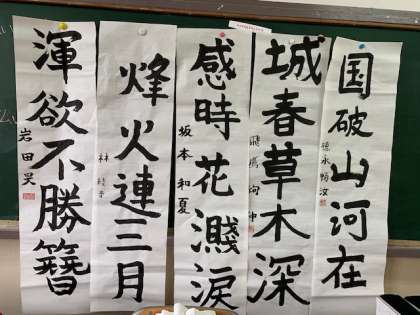 国破山河在
城春草木深
感時花濺涙
坂本和夏
烽火連三月
林
渾欲不勝簪
岩田昊